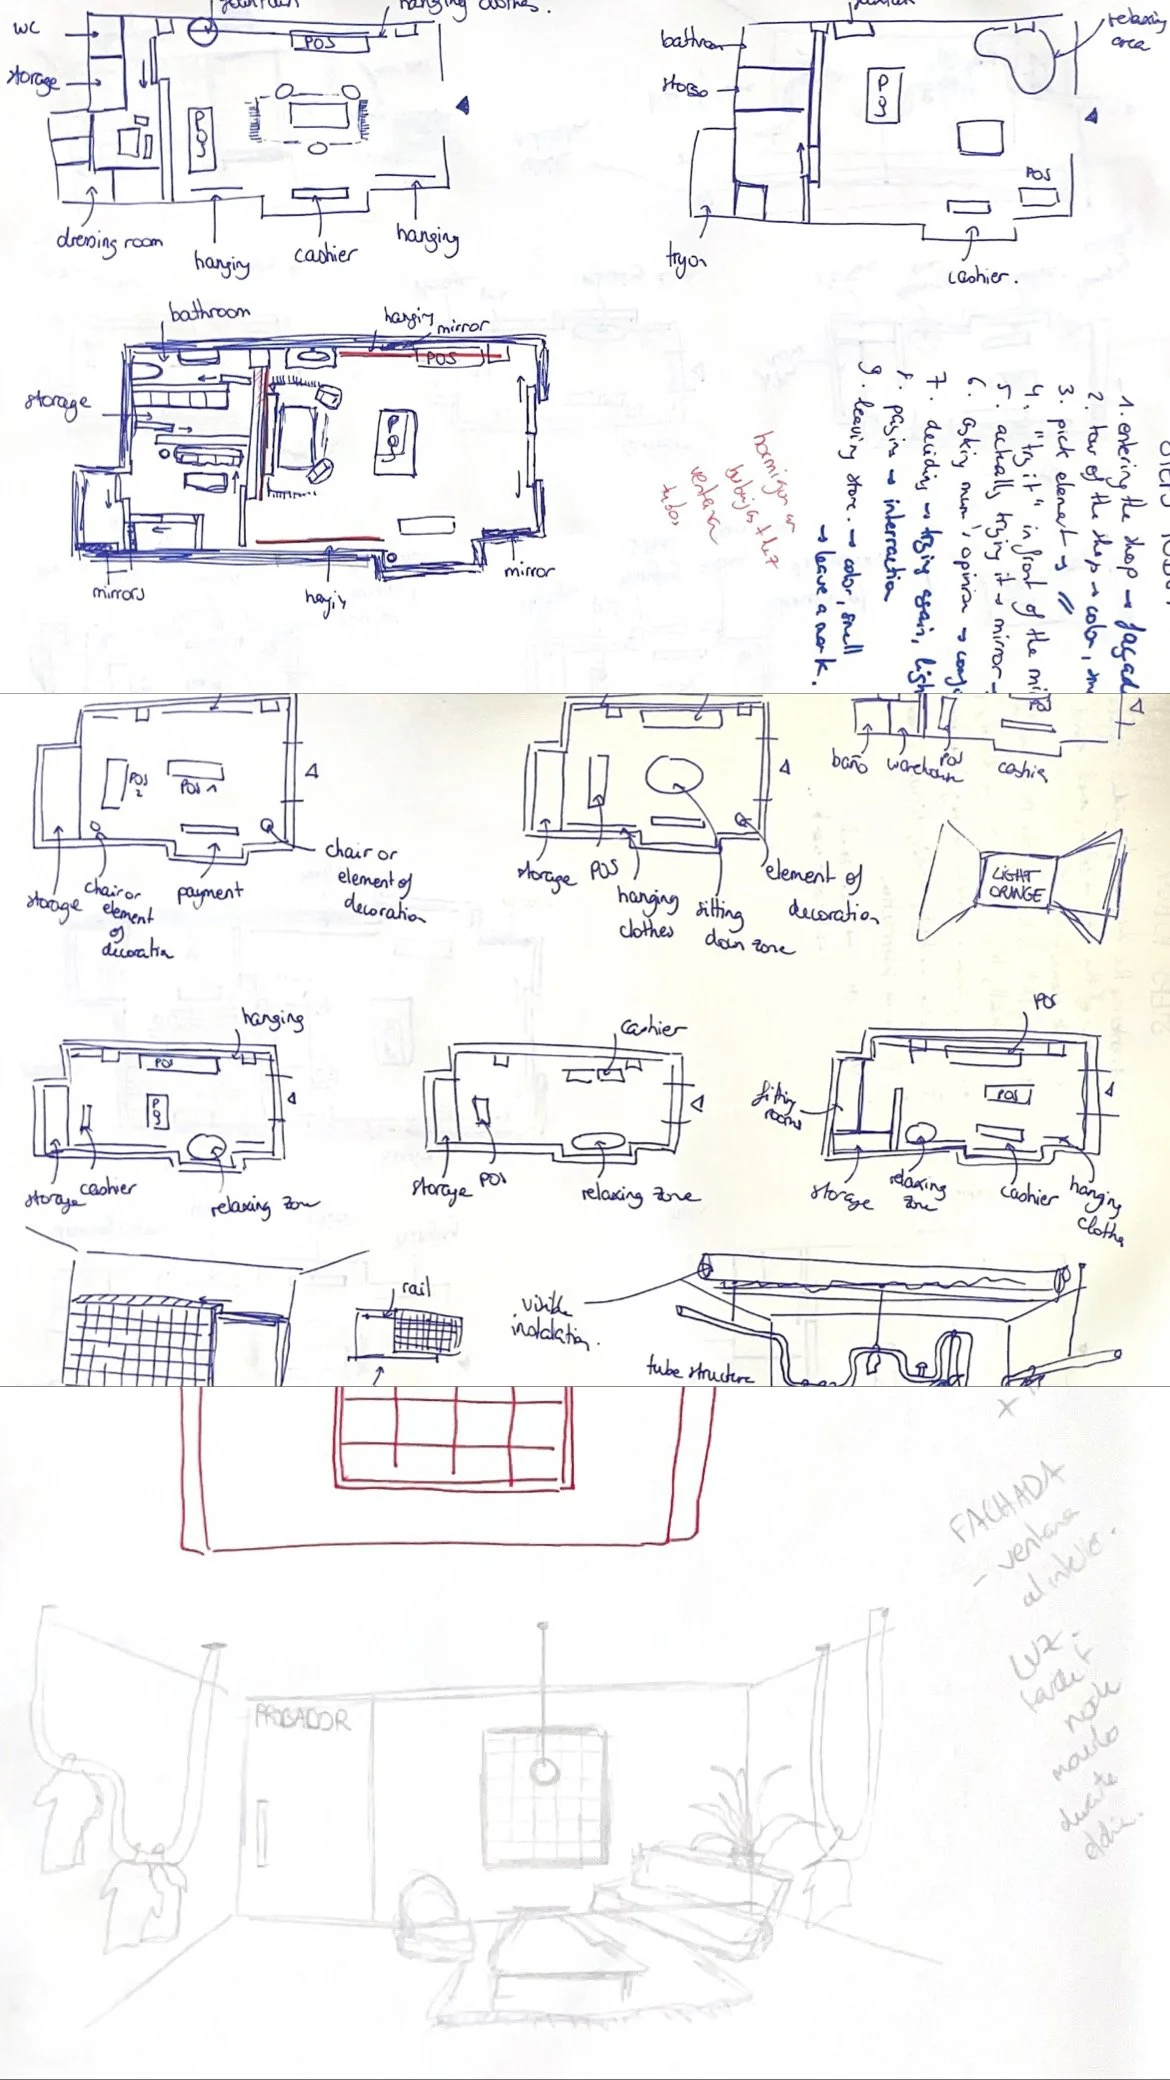 hanging clothes.
WC
storage
POS
POS
dressing room
hanging
cashier
hanging
relaxing
area
bathroom
POS
POS
tryon
cashier.
bathroom
hangin
mirror
POS
storage
POS
mirrors
mirror
1. entering the shop →
2. tour of the shop → color,
3. pick element →
4. "try it" in front of the
5. actually trying it → mirror →
6. asking mum's opinion →
7. deciding → trying again,
8. paying → interraction
9. leaving store. → color, smell
→ leave a mark.
hormigon
ventana
tubos
POS
2
POS 1
storage
chair or
element
of
decoration
payment
chair or
element of
decoration
storage
POS
hanging
clothes
sitting
down zone
element of
decoration
baño
warehouse
POS
cashier
LIGHT
ORANGE
hanging
POS
POS
storage
cashier
relaxing zone
cashier
storage
POS
relaxing zone
POS
fitting
rooms
POS
storage
relaxing
zone
cashier
hanging
clothes
rail
visible
instalation.
tube structure
FACHADA
- ventana
al interior.
LUZ.
PROBADOR